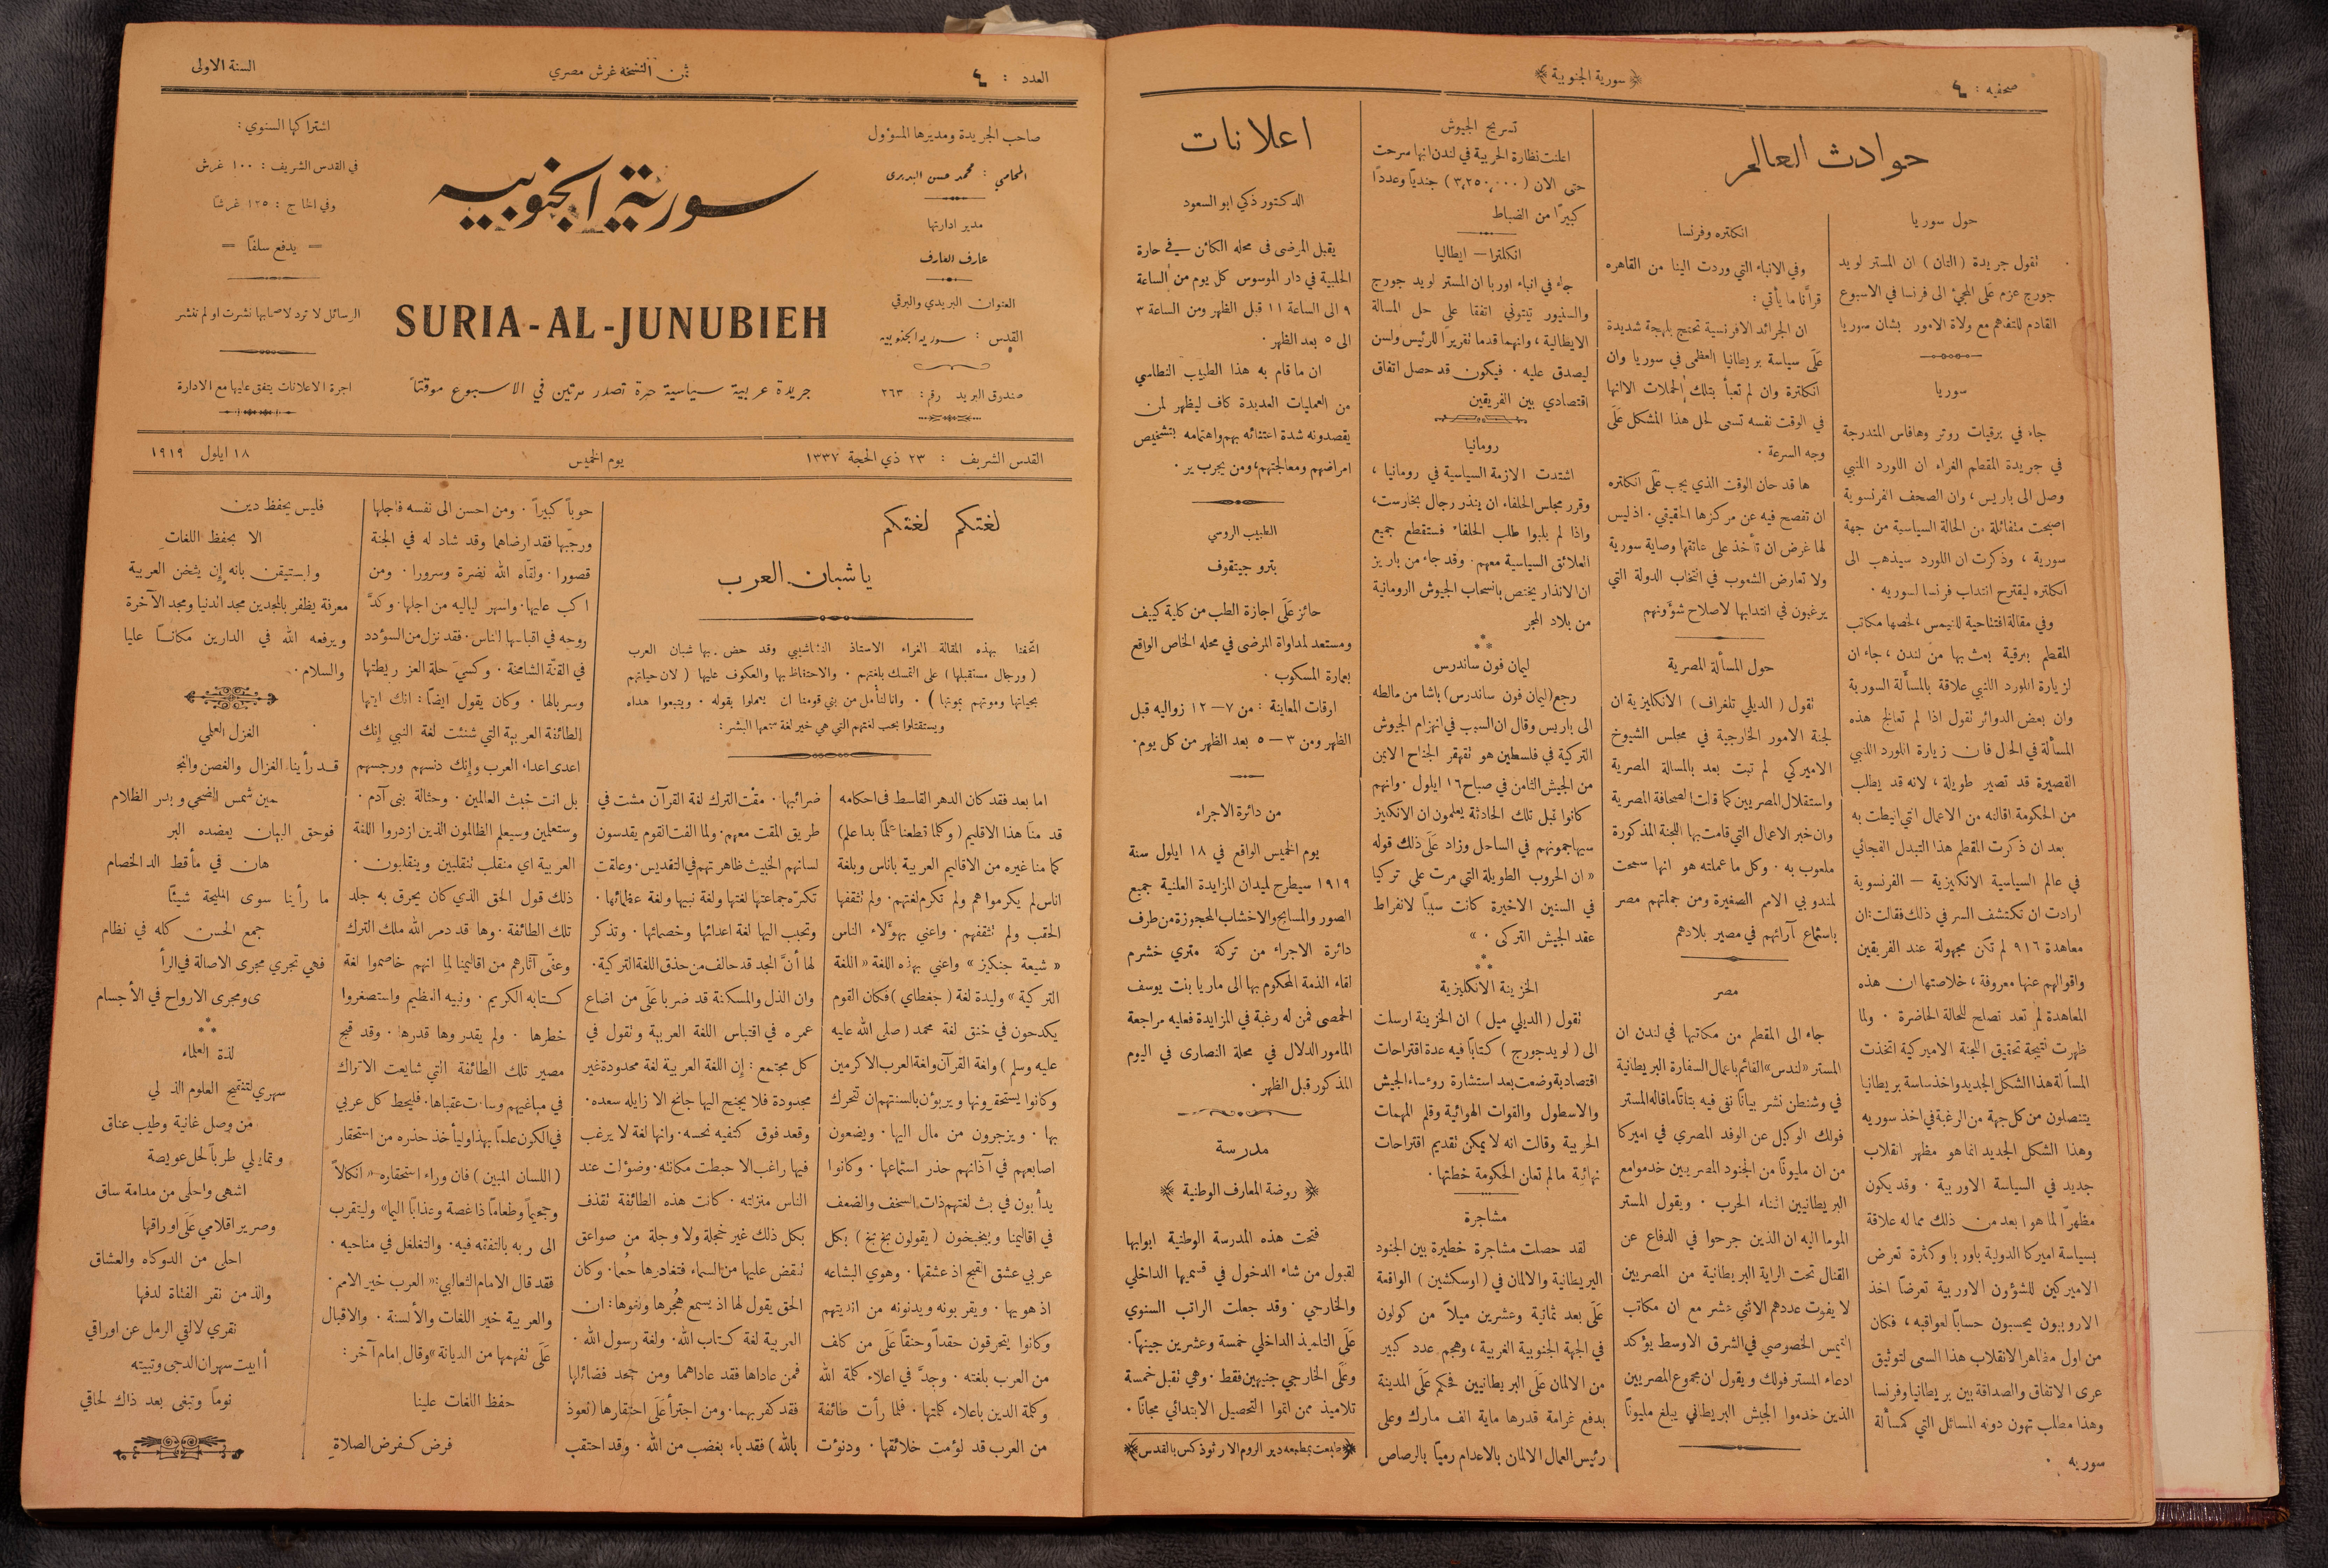 صحفيه : ٤
﴿ سورية الجنوبية ﴾
حوادث العالم
حول سوريا
تقول جريدة (التان) ان المستر لويد
جورج عزم عَلَى المجيء الى فرنسا في الاسبوع
القادم للتفاهم مع ولاة الامور بشان سوريا
سوريا
جاء في برقيات روتر وهافاس المندرجة
في جريدة المقطم الغراء ان اللورد اللنبي
وصل الى باريس ، وان الصحف الفرنسوية
اصبحت متفائلة من الحالة السياسية من جهة
سورية ، وذكرت ان اللورد سيذهب الى
انكلتره ليقترح انتداب فرنسا لسوريه .
وفي مقالة افتتاحية للتيمس ، لخصها مكاتب
المقطم ببرقية بعث بها من لندن ، جاء ان
لزيارة اللورد اللنبي علاقة بالمسألة السورية
وان بعض الدوائر تقول اذا لم تعالج هذه
المسألة في الحال فان زيارة اللورد اللنبي
القصيرة قد تصير طويلة ، لانه قد يطلب
من الحكومة اقالته من الاعمال التي انيطت به
بعد ان ذكرت المقطم هذا التبدل الفجائي
في عالم السياسية الانكليزية — الفرنسوية
ارادت ان تكتشف السر في ذلك فقالت : ان
معاهدة ٩١٦ لم تكن مجهولة عند الفريقين
واقوالهم عنها معروفة ، خلاصتها ان هذه
المعاهدة لم تعد تصلح للحالة الحاضرة . ولما
ظهرت نتيجة تحقيق اللجنة الاميركية اتخذت
المسألة هذا الشكل الجديد واخذ ساسة بريطانيا
يتنصلون من كل جهة من الرغبة في اخذ سوريه
وهذا الشكل الجديد انما هو مظهر انقلاب
جديد في السياسة الاوربية . وقد يكون
مظهرًا لما هو ابعد من ذلك مما له علاقة
بسياسة اميركا الدولية باوربا وكثرة تعرض
الاميركين للشؤون الاوربية تعرضاً اخذ
الاروبيون يحسبون حسابًا لعواقبه ، فكان
من اول مظاهر الانقلاب هذا السعى لتوثيق
عرى الاتفاق والصداقة بين بريطانيا وفرنسا
وهذا مطلب تهون دونه المسائل التي كمسألة
سوريه .
انكلتره وفرنسا
وفي الانباء التي وردت الينا من القاهره
قرأنا ما يأتي :
ان الجرائد الافرنسية تحتج بلهجة شديدة
عَلَى سياسة بريطانيا العظمى في سوريا وان
انكلترة وان لم تعبأ بتلك الحملات الا انها
في الوقت نفسه تسعى لحل هذا المشكل عَلَى
وجه السرعة .
ها قد حان الوقت الذي يجب عَلَى انكلتره
ان تفصح فيه عن مركزها الحقيقي . اذ ليس
لها غرض ان تأخذ على عاتقها وصاية سورية
ولا تعارض الشعوب في انتخاب الدولة التي
يرغبون في انتدابها لاصلاح شؤونهم
حول المسألة المصرية
تقول ( الديلي تلغراف ) الانكليزية ان
لجنة الامور الخارجية في مجلس الشيوخ
الاميركي لم تبت بعد بالمسالة المصرية
واستقلال المصريين كما قالت الصحافة المصرية
وان خبر الاعمال التي قامت بها اللجنة المذكورة
ملعوب به . وكل ما عملته هو انها سمحت
لمندوبي الامم الصغيرة ومن جملتهم مصر
باسماع آرائهم في مصير بلادهم
مصر
جاء الى المقطم من مكاتبها في لندن ان
المستر «لندس» القائم باعمال السفارة البريطانية
في وشنطن نشر بيانًا نفى فيه بتاتًا ما قاله المستر
فولك الوكيل عن الوفد المصري في اميركا
من ان مليونًا من الجنود المصريين خدموا مع
البريطانيين اثناء الحرب . ويقول المستر
الموما اليه ان الذين جرحوا في الدفاع عن
القتال تحت الراية البريطانية من المصريين
لا يفوت عددهم الاثني عشر مع ان مكاتب
التيمس الخصوصي في الشرق الاوسط يؤكد
ادعاء المستر فولك ويقول ان مجموع المصريين
الذين خدموا الجيش البريطاني يبلغ مليونًا
تسريح الجيوش
اعلنت نظارة الحربية في لندن انها سرحت
حتى الان ( ٣,٢٥٠,٠٠٠ ) جنديًا وعددًا
كبيرًا من الضباط
انكلترا — ايطاليا
جاء في انباء اوربا ان المستر لويد جورج
والسنيور تيتوني اتفقا على حل المسالة
الايطالية ، وانهما قدما تقريرًا للرئيس ولسن
ليصدق عليه . فيكون قد حصل اتفاق
اقتصادي بين الفريقين
رومانيا
اشتدت الازمة السياسية في رومانيا ،
وقرر مجلس الحلفاء ان ينذر رجال بخارست ،
واذا لم يلبوا طلب الحلفاء فستقطع جميع
العلائق السياسية معهم . وقد جاء من باريز
ان الانذار يختص بانسحاب الجيوش الرومانية
من بلاد المجر
ليمان فون ساندرس
رجع (ليمان فون ساندرس) باشا من مالطه
الى باريس وقال ان السبب في انهزام الجيوش
التركية في فلسطين هو تقهقر الجناح الايمن
من الجيش الثامن في صباح ١٦ ايلول . وانهم
كانوا قبل تلك الحادثة يعلمون ان الانكليز
سيهاجمونهم في الساحل وزاد عَلَى ذلك قوله
« ان الحروب الطويلة التي مرت على تركيا
في السنين الاخيرة كانت سببًا لانفراط
عقد الجيش التركى . »
الخزينة الانكليزية
تقول ( الديلي ميل ) ان الخزينة ارسلت
الى ( لويد جورج ) كتابًا فيه عدة اقتراحات
اقتصادية وضعت بعد استشارة روءساء الجيش
والاسطول والقوات الهوائية وقلم المهمات
الحربية وقالت انه لا يمكن تقديم اقتراحات
نهائية ما لم تعلن الحكومة خطتها .
مشاجرة
لقد حصلت مشاجرة خطيرة بين الجنود
البريطانية والالمان في ( اوسكشين ) الواقعة
عَلَى بعد ثمانية وعشرين ميلاً من كولون
في الجهة الجنوبية الغربية ، وهجم عدد كبير
من الالمان عَلَى البريطانيين فحكم عَلَى المدينة
بدفع غرامة قدرها ماية الف مارك وعلى
رئيس العمال الالمان بالاعدام رميًا بالرصاص
اعلانات
الدكتور ذكي ابو السعود
يقبل المرضى فى محله الكائن في حارة
الحلبية في دار الموسوس كل يوم من الساعة
٩ الى الساعة ١١ قبل الظهر ومن الساعة ٣
الى ٥ بعد الظهر .
ان ما قام به هذا الطبيب النطاسي
من العمليات العديدة كاف ليظهر لمن
يقصدونه شدة اعتنائه بهم واهتمامه بتشخيص
امراضهم ومعالجتهم ، ومن يجرب ير .
الطبيب الروسي
بترو جيتقوف
حائز عَلَى اجازة الطب من كلية كييف
ومستعد لمداواة المرضى في محله الخاص الواقع
بعمارة المسكوب .
اوقات المعاينة : من ٧—١٢ زواليه قبل
الظهر ومن ٣—٥ بعد الظهر من كل يوم .
من دائرة الاجراء
يوم الخميس الواقع في ١٨ ايلول سنة
١٩١٩ سيطرح لميدان المزايدة العلنية جميع
الصور والمسابح والاخشاب المحجوزة من طرف
دائرة الاجراء من تركة متري خشرم
لقاء الذمة المحكوم بها الى ماريا بنت يوسف
الحمصى فمن له رغبة في المزايدة فعليه مراجعة
المامور الدلال في محلة النصارى في اليوم
المذكور قبل الظهر .
مدرسة
﴿ روضة المعارف الوطنية ﴾
فتحت هذه المدرسة الوطنية ابوابها
لقبول من شاء الدخول في قسميها الداخلي
والخارجي . وقد جعلت الراتب السنوي
عَلَى التلميذ الداخلي خمسة وعشرين جينهًا .
وعَلَى الخارجي جنيهين فقط . وهي تقبل خمسة
تلاميذ ممن اتموا التحصيل الابتدائي مجانًا .
﴿ طبعت بمطبعه دير الروم الارثوذكس بالقدس ﴾
العدد : ٤
ثمن النسخة غرش مصري
السنة الاولى
صاحب الجريدة ومديرها المسؤول
المحامي : محمد حسن البديرى
مدير ادارتها
عارف العارف
العنوان البريدي والبرقي
القدس : سورية الجنوبيه
صندوق البريد رقم : ٢٦٣
سورية الجنوبيه
SURIA-AL-JUNUBIEH
جريدة عربية سياسية حرة تصدر مرتين في الاسبوع موقتاً
اشتراكها السنوي :
في القدس الشريف : ١٠٠ غرش
وفي الخارج : ١٢٥ غرشا
— يدفع سلفًا —
الرسائل لا ترد لاصحابها نشرت او لم تنشر
اجرة الاعلانات يتفق عليها مع الادارة
القدس الشريف : ٢٣ ذي الحجة ١٣٣٧
يوم الخميس
١٨ ايلول ١٩١٩
لغتكم لغتكم
يا شبان العرب
اتحفنا بهذه المقالة الغراء الاستاذ النشاشيبي وقد حض بها شبان العرب
( ورجال مستقبلها ) على التمسك بلغتهم . والاحتفاظ بها والعكوف عليها ( لان حياتهم
بحياتها وموتهم بموتها ) . وانا لنأمل من بني قومنا ان يعملوا بقوله . ويتبعوا هداه
ويستقتلوا بحب لغتهم التي هي خير لغة سمعها البشر :
اما بعد فقد كان الدهر القاسط فى احكامه
قد منا هذا الاقليم ( وكلما قطعنا علمًا بدا علم)
كما منا غيره من الاقاليم العربية باناس وبلغة
اناس لم يكرموا هم ولم تكرم لغتهم . ولم نثقفها
الحقب ولم تثقفهم . واعني بهؤلاء الناس
« شيعة جنكيز » واعني بهذه اللغة « اللغة
التركية » وليدة لغة ( جغطاي ) فكان القوم
يكدحون في خنق لغة محمد ( صلى الله عليه
عليه وسلم ) ولغة القرآن ولغة العرب الاكرمين
وكانوا يستحقرونها ويربؤن بالسنتهم ان تتحرك
بها . ويزجرون من مال اليها . ويضعون
اصابعهم في آذانهم حذر استماعها . وكانوا
يدأبون في بث لغتهم ذات السخف والضعف
في اقاليمنا ويبخبخون ( يقولون بخ بخ ) بكل
عربي عشق القبح اذ عشقها . وهوي البشاعه
اذ هويها . ويقربونه ويدنونه من انديتهم
وكانوا يتحرقون حقداً وحنقا عَلَى من كلف
من العرب بلغته . وجدَّ في اعلاء كلمة الله
وكلمة الدين باعلاء كلمتها . فلما رأت طائفة
من العرب قد لؤمت خلائقها . ودنؤت
ضرائبها . مقْت الترك لغة القرآن مشت في
طريق المقت معهم . ولما الفت القوم يقدسون
لسانهم الخبيث ظاهرتهم في التقديس . وعلقت
تكرّه جماعتها لغتها ولغة نبيها ولغة عظمائها .
وتحبب اليها لغة اعدائها وخصمائها . وتذكر
لها أنَّ الجد قد حالف من حذق اللغة التركية .
وان الذل والمسكنة قد ضربا عَلَى من اضاع
عمره في اقتباس اللغة العربية وتقول في
كل مجتمع : إن اللغة العربية لغة محدودة غير
مجدودة فلا يجنح اليها جانح الا زايله سعده .
وقعد فوق كتفيه نحسه . وانها لغة لا يرغب
فيها راغب الا حبطت مكانته . وضؤلت عند
الناس منزلته . كانت هذه الطائفة تقذف
بكل ذلك غير خجلة ولا وجلة من صواعق
تنقض عليها من السماء فتغادرها حُمَا . وكان
الحق يقول لها اذ يسمع هُجرها ولغوها : ان
العربية لغة كتاب الله . ولغة رسول الله .
فمن عاداها فقد عاداهما ومن جحد فضائلها
فقد كفر بهما . ومن اجترأ عَلَى احتقارها ( نعوذ
بالله ) فقد باء بغضب من الله . وقد احتقب
حوباً كبيراً . ومن احسن الى نفسه فاجلها
ورجّبها فقد ارضاهما وقد شاد له في الجنة
قصورا . ولقّاه الله نضرة وسرورا . ومن
اكب عليها . واسهر لياليه من اجلها . وكدَّ
روحه في اقباسها الناس . فقد نزل من السؤدد
في القنّة الشامخة . وكسيَ حلة العز ريطتها
وسربالها . وكان يقول ايضًا : انك ايتها
الطائفة العربية التي شنئت لغة النبي إنك
اعدى اعداء العرب وإنك دنسهم ورجسهم
بل انت خبث العالمين . وحثالة بنى آدم .
وستعلمين وسيعلم الظالمون الذين ازدروا اللغة
العربية اي منقلب تنقلبين وينقلبون .
ذلك قول الحق الذي كان يحرق به جلد
تلك الطائفة . وها قد دمر الله ملك الترك
وعفّى آثارهم من اقاليمنا لما انهم خاصموا لغة
كتابه الكريم . ونبيه العظيم واستصغروا
خطرها . ولم يقدروها قدرها . وقد قبح
مصير تلك الطائفة التي شايعت الاتراك
في مباغيهم وساءت عقباها . فليحط كل عربي
في الكون علمًا بهذا وليأخذ حذره من استحقار
( اللسان المبين ) فان وراء استحقاره « انكالاً
وجحيمًا وطعامًا ذا غصة وعذابًا اليما » وليتقرب
الى ربه بالتفقه فيه . والتغلغل في مناحيه .
فقد قال الامام الثعالبي : « العرب خير الامم .
والعربية خير اللغات والألسنة . والاقبال
عَلَى تفهمها من الديانة » وقال إمام آخر :
حفظ اللغات علينا
فرض كفرض الصلاة
فليس يحفظ دين
الا بحفظ اللغاتِ
وليستيقن بانه إن يثخن العربية
معرفة يظفر بالمجدين مجد الدنيا ومجد الآخرة
ويرفعه الله في الدارين مكانًا عليا
والسلام .
الغزل العلمي
قد رأينا الغزال والغصن والنجـ
ـمين شمس الضحى وبدر الظلام
فوحق البيان يعضده البر
هان في مأقط الد الخصام
ما رأينا سوى المليحة شيئًا
جمع الحسن كله في نظام
فهي تجري مجرى الاصالة في الرأ
ي ومجرى الارواح في الأجسام
لذة العلماء
سهري لتنقيح العلوم الذ لي
من وصل غانية وطيب عناق
وتمايلي طرباً لحل عويصة
اشهى واحلى من مدامة ساق
وصرير اقلامي عَلَى اوراقها
احلى من الدوكاه والعشاق
والذ من نقر الفتاة لدفها
نقري لالقي الرمل عن اوراقي
أابيت سهران الدجى وتبيته
نوماً وتبغى بعد ذاك لحاقي